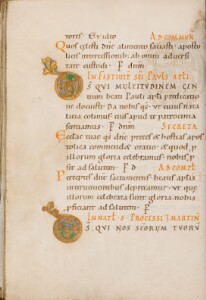 AD COMMUN
Quos celesti dne alimento satiasti. aposto
licis intercessionib; ab omni adversi
tate custodi. P
IN FESTIVIT SCI PAULI APLI
DS QUI MULTITUDINEM GEN
tium beati Pauli apli predicatio
ne docuisti. Da nobis qs. ut cuius nata
licia colimus. eius apud te patrocinia
sentiamus. P
SECRETA
Ecclae tuae qs dne preces & hostias apos
tolica commendet oratio. ut quod p
illorum gloria celebramus. nobis p
sit ad salutem. P
AD COMPL
Perceptis dne sacramentis. beatis aplis
intervenientibus deprecamur. ut que p
illorum celebrata sunt gloria. nobis
pficiant ad salutem. P
IN NAT S PROCESSI & MARTINI
DS QUI NOS SCORUM TUORU